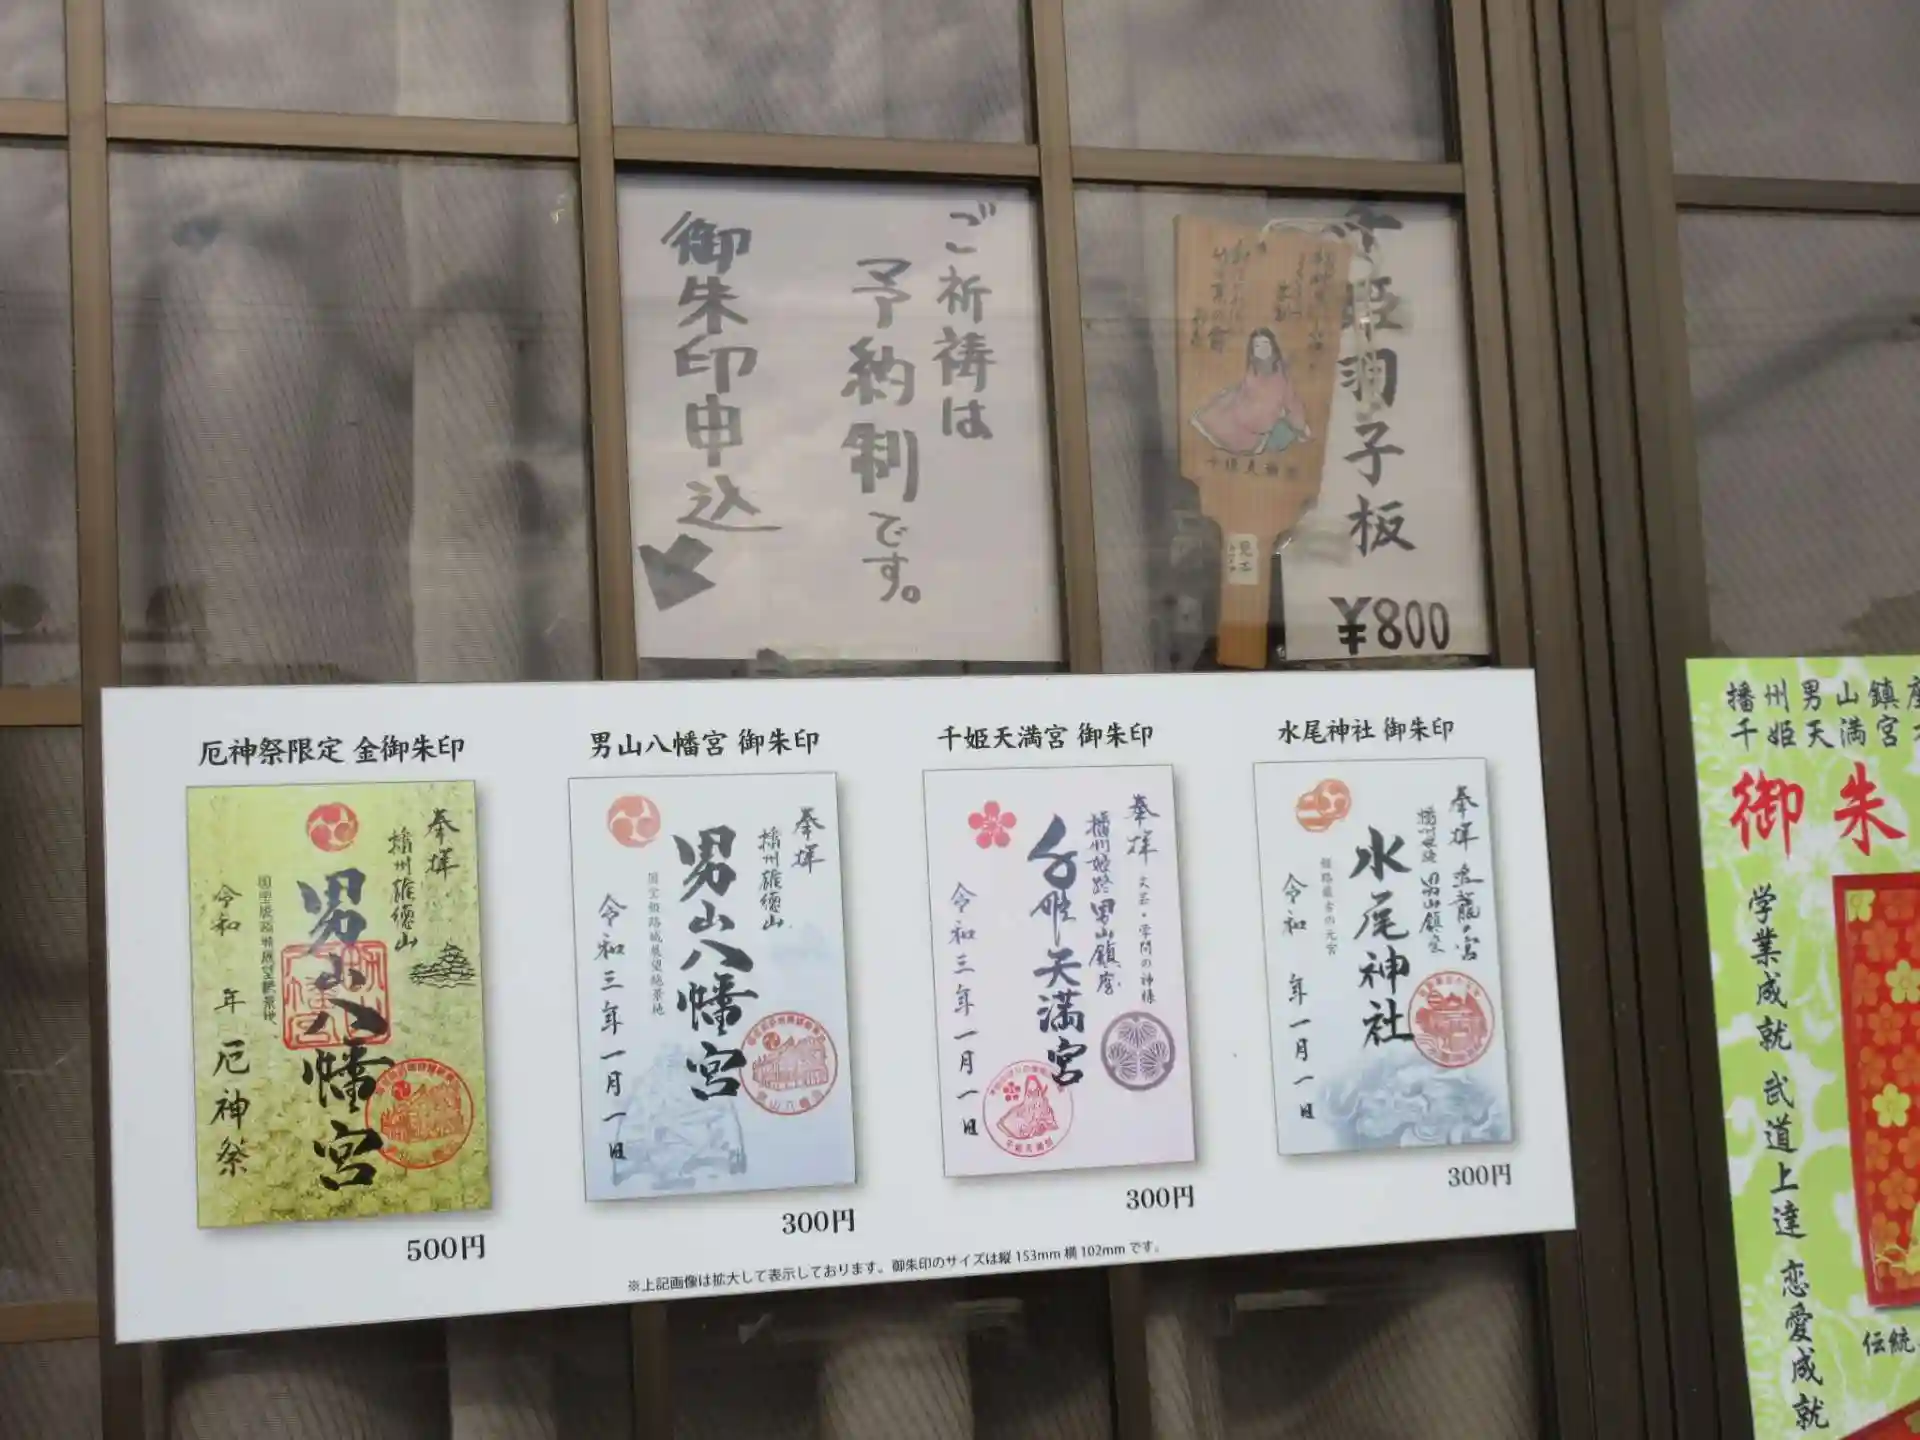 ご祈祷は
予約制です。
御朱印申込
姫羽子板
¥800
千姫天満宮
厄神祭限定 金御朱印
奉拝
播州雄徳山
男山八幡宮
令和 年 厄神祭
500円
男山八幡宮 御朱印
奉拝
播州雄徳山
男山八幡宮
国宝姫路城展望絶景地
令和三年一月一日
300円
千姫天満宮 御朱印
奉拝
文芸・学問の神様
播州姫路男山鎮座
千姫天満宮
令和三年一月一日
300円
水尾神社 御朱印
奉拝
男山鎮座
水尾神社
令和 年一月一日
300円
※上記画像は拡大して表示しております。御朱印のサイズは縦 153mm 横 102mm です。
播州男山鎮座
千姫天満宮
御朱
学業成就 武道上達 恋愛成就
伝統